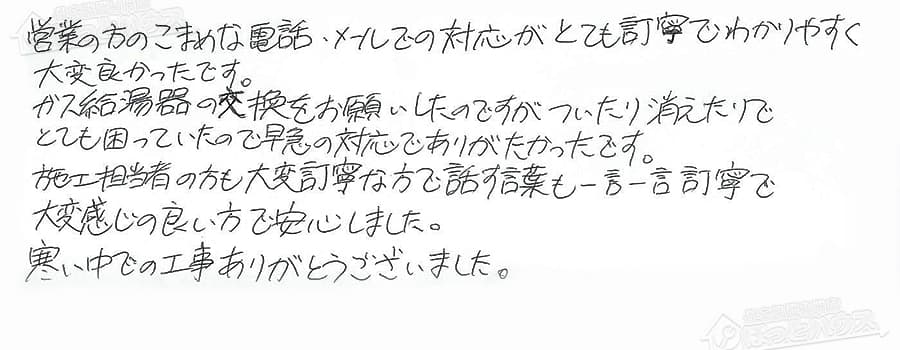 営業の方のこまめな電話・メールでの対応がとても訂寧でわかりやすく
大変良かったです。
ガス給湯器の交換をお願いしたのですがついたり消えたりで
とても困っていたので早急の対応でありがたかったです。
施工担当者の方も大変訂寧な方で話す言葉も一言一言訂寧で
大変感じの良い方で安心しました。
寒い中での工事ありがとうございました。
ほっとハウス